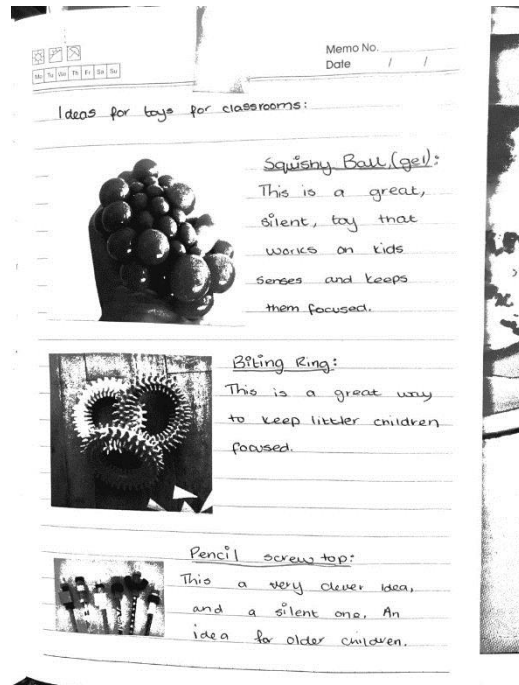 Memo No.
Mo Tu We Th Fr Sa Su
Date / /
Ideas for toys for classrooms:
Squishy Ball (gel):
This is a great,
silent, toy that
works on kids
senses and keeps
them focused.
Biting Ring:
This is a great way
to keep littler children
focused.
Pencil screw top:
This a very clever idea,
and a silent one. An
idea for older children.